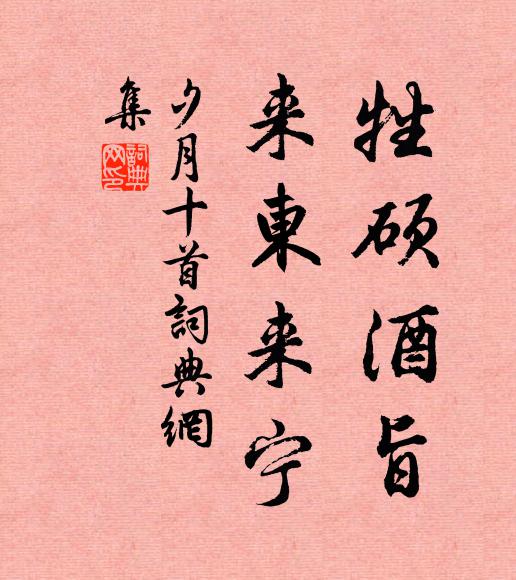 牲硕酒旨
来東来宁
夕月十首詞典網
集
詞典網印